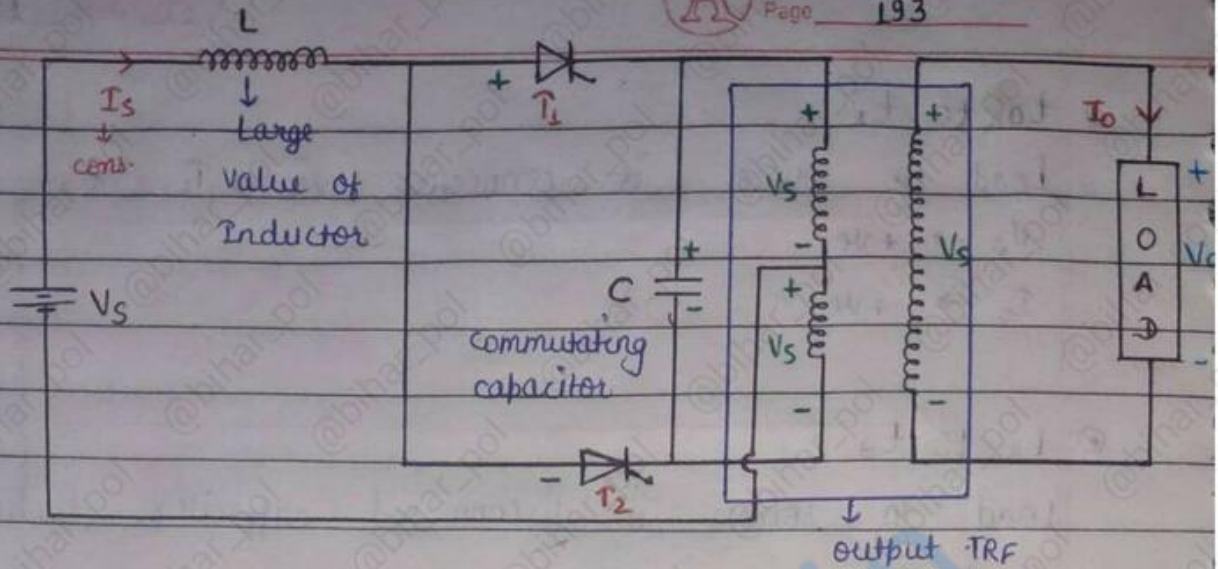 Page 193
L
+
T1
Is
↓
cons.
↓
Large
value of
Inductor
Vs
C
+
-
commutating
capacitor
+
Vs
-
+
Vs
-
+
Vs
-
Io
L
O
A
D
+
-
-
T2
↓
output TRF
@bihar_pol